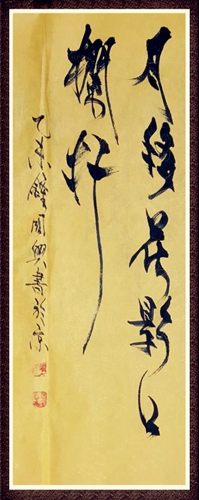 月移花影上
欄杆
乙未鐘國興書於京